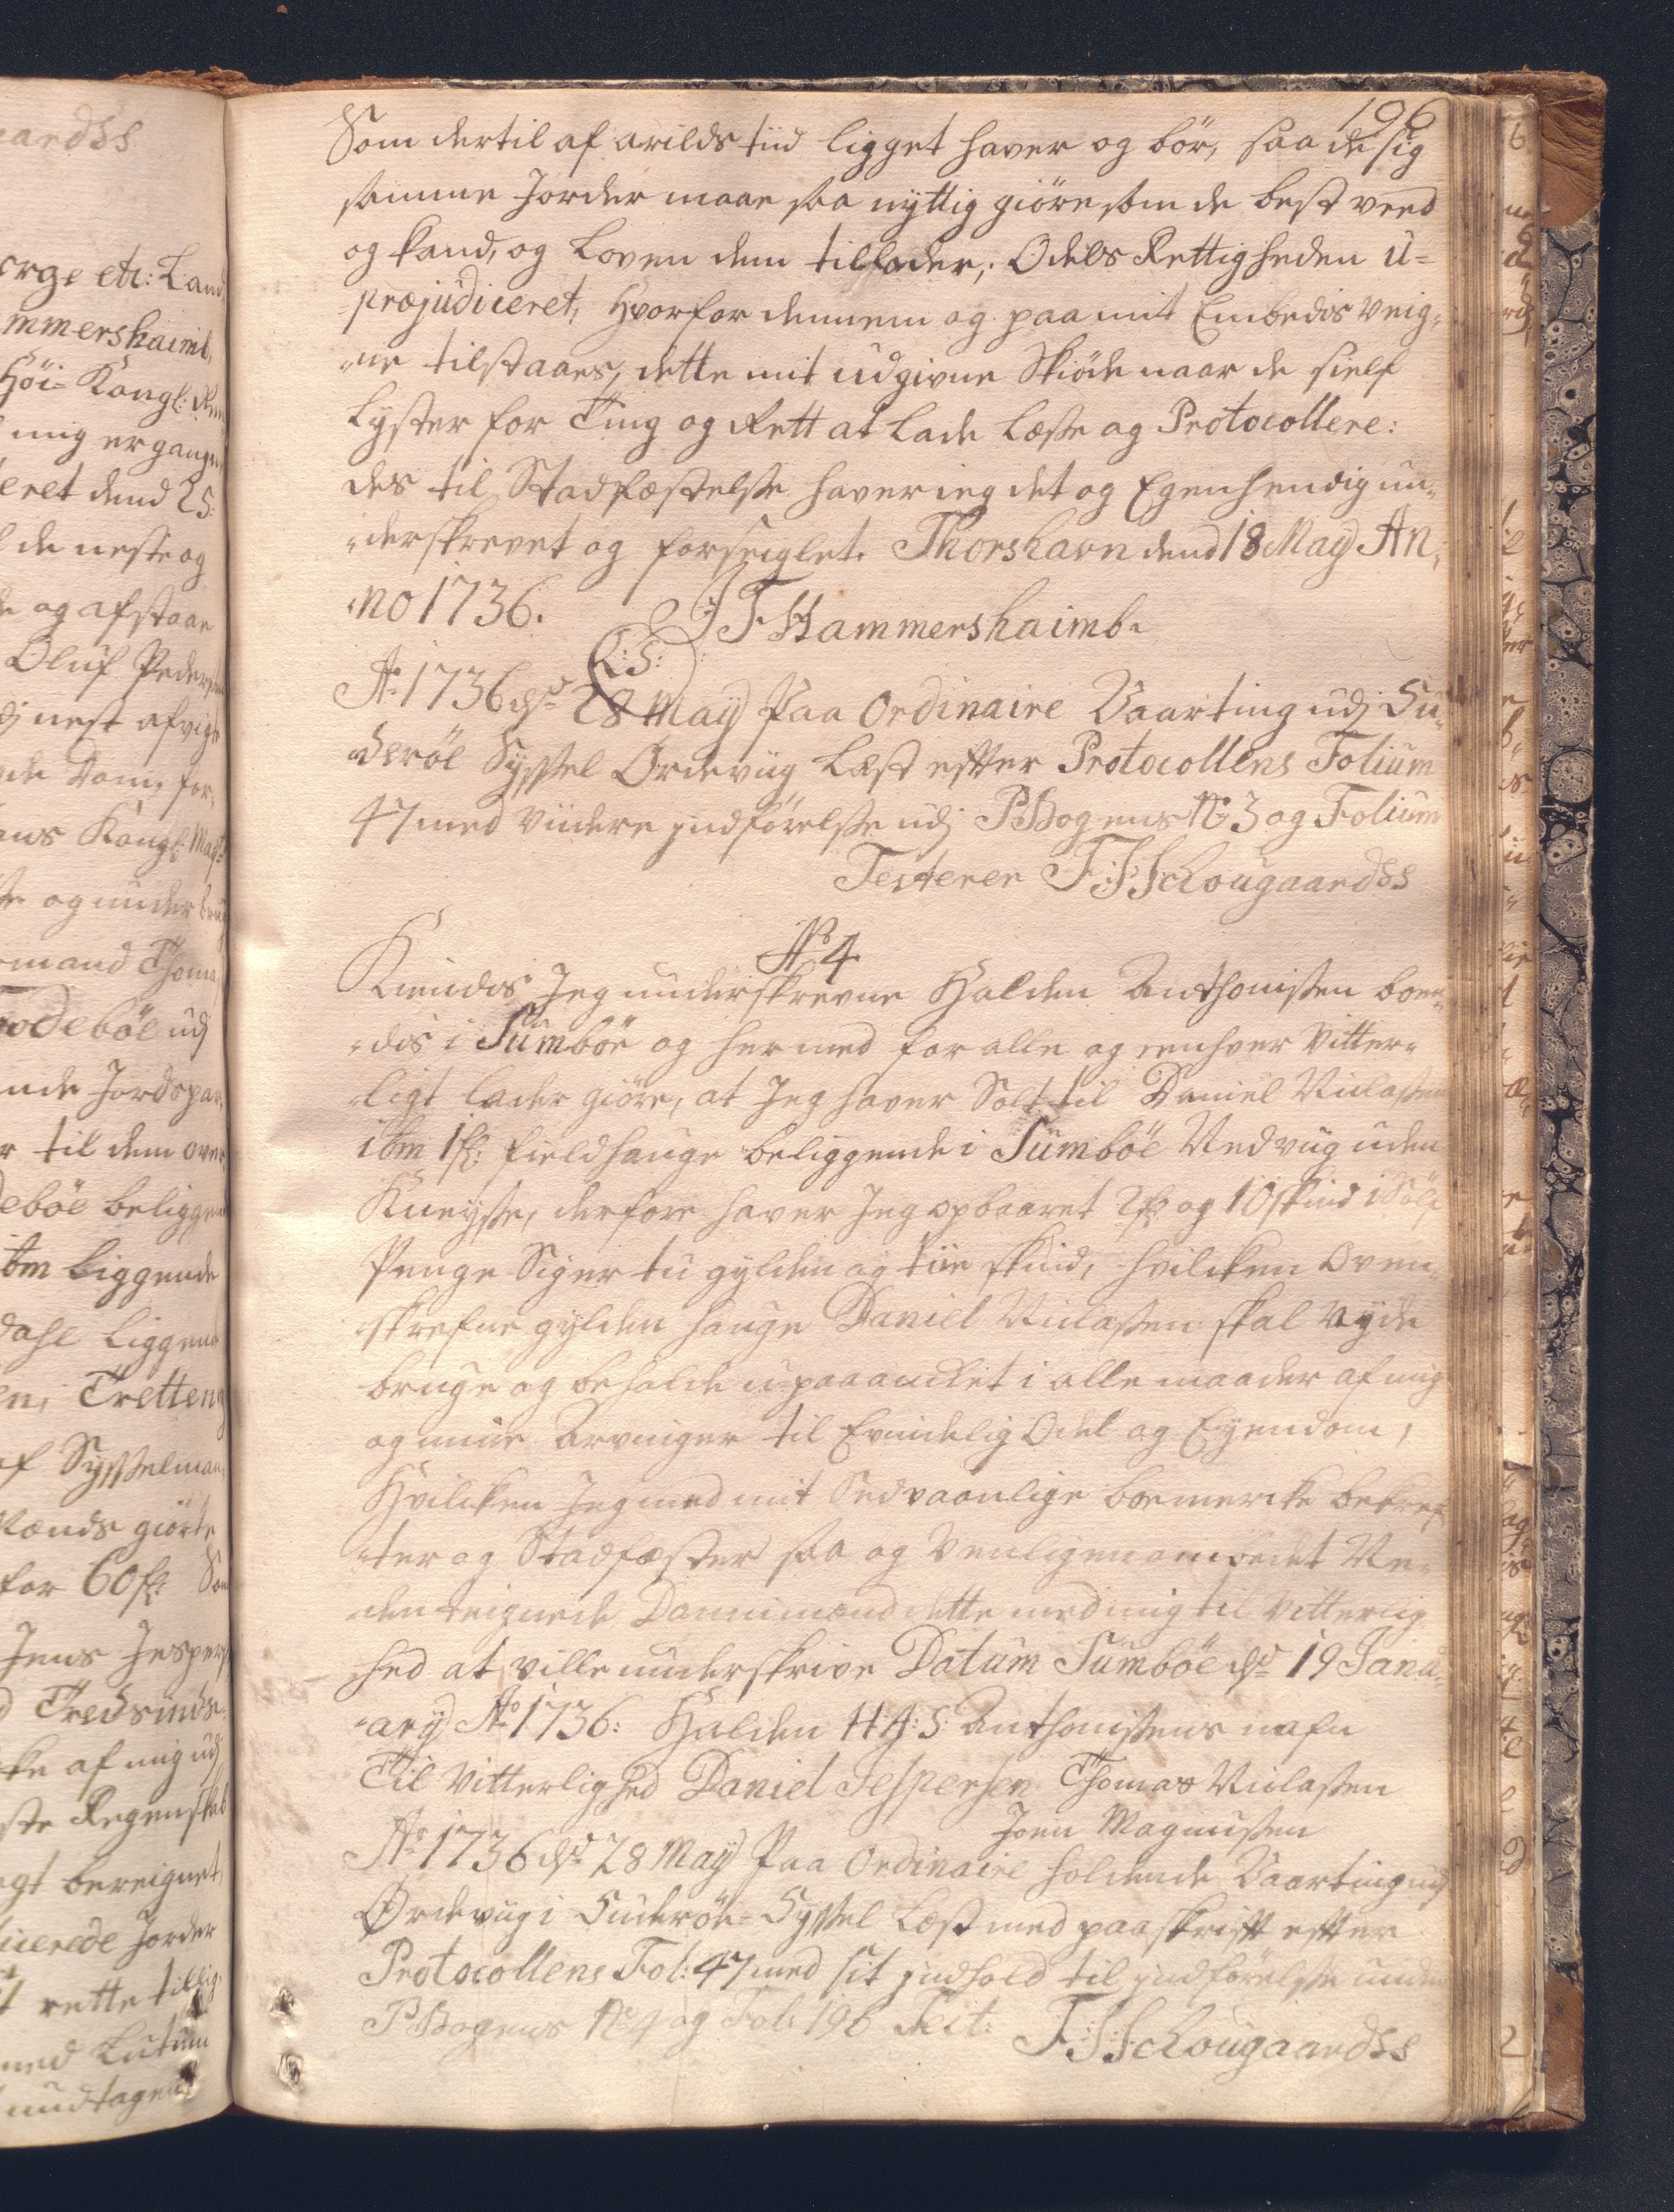 196
Som dertil af arilds tiid ligget haver og bör, saa de sig
samme Jorder maae saa nyttig giöre som de best veed
og kand, og Loven dem tillader, Odels Rettigheden u=
præjudiceret, Hvorfor dennem og paa mit Embedis veig,
ne tilstaaes, dette mit udgivne Skiöde naar de sielf
Lyster for Ting og Rett at lade læse og Protocollere:
des til Stadfæstelsse haver ieg det og Egenhendig un,
derskrevet og forseiglet. Thorshavn dend 18 May An,
no 1736. J F Hammershaimb.
L:S:
Ao 1736 d: 28 May Paa Ordinaire Vaarting udj Su,
deröe Syssel Ordevüg Læst efter Protocollens Folium
47 med viidere indförelsse udj PBogens No 3 og Folium
Testerer F:J:Schougaardss
No 4
Kiendes Jeg underskrevne Halden Anthonissen boen,
des i Sumböe og hermed for alle og eenhver Vitter,
ligt lader giöre, at Jeg haver Solt til Daniel Niclassen
ibm 1 fl: fieldhauge beliggende i Sumböe Vedvüg uden
Kneysse, derfore haver Jeg opbaaret 2 fl: og 10 skind i Sölf
Penge Siger tu gylden og tiie skind, hvilcken Oven,
skrefne gylden hauge Daniel Niclassen skal Nyde
bruge og beholde upaaancket i alle maader af mig
og miine Arvinger til Evindelig Odel og Eyendom,
Hvilcken Jeg med mit Sedvaanlige boemercke bekref,
ter og Stadfæster saa og Venligen ombedet Ne,
den teignede Dannimænd dette med mig til Vitterlig
hed at ville underskrive Datum Sumböe d: 19 Janu,
ary Ao 1736: Halden H:A:S: Anthonissens nafn
Til Vitterlighed Daniel Jespersen Thomas Niclassen
Joen Magnussen
Ao 1736 d: 28 May Paa Ordinaire holdende Vaarting udj
Ördevüg i Suderöe=Syssel Læst med paaskrift efter
Protocollens Fol: 47 med sit indhold til indförelsse under
PBogens No 4 og Fol: 196 Test: F:J:Schougaardss